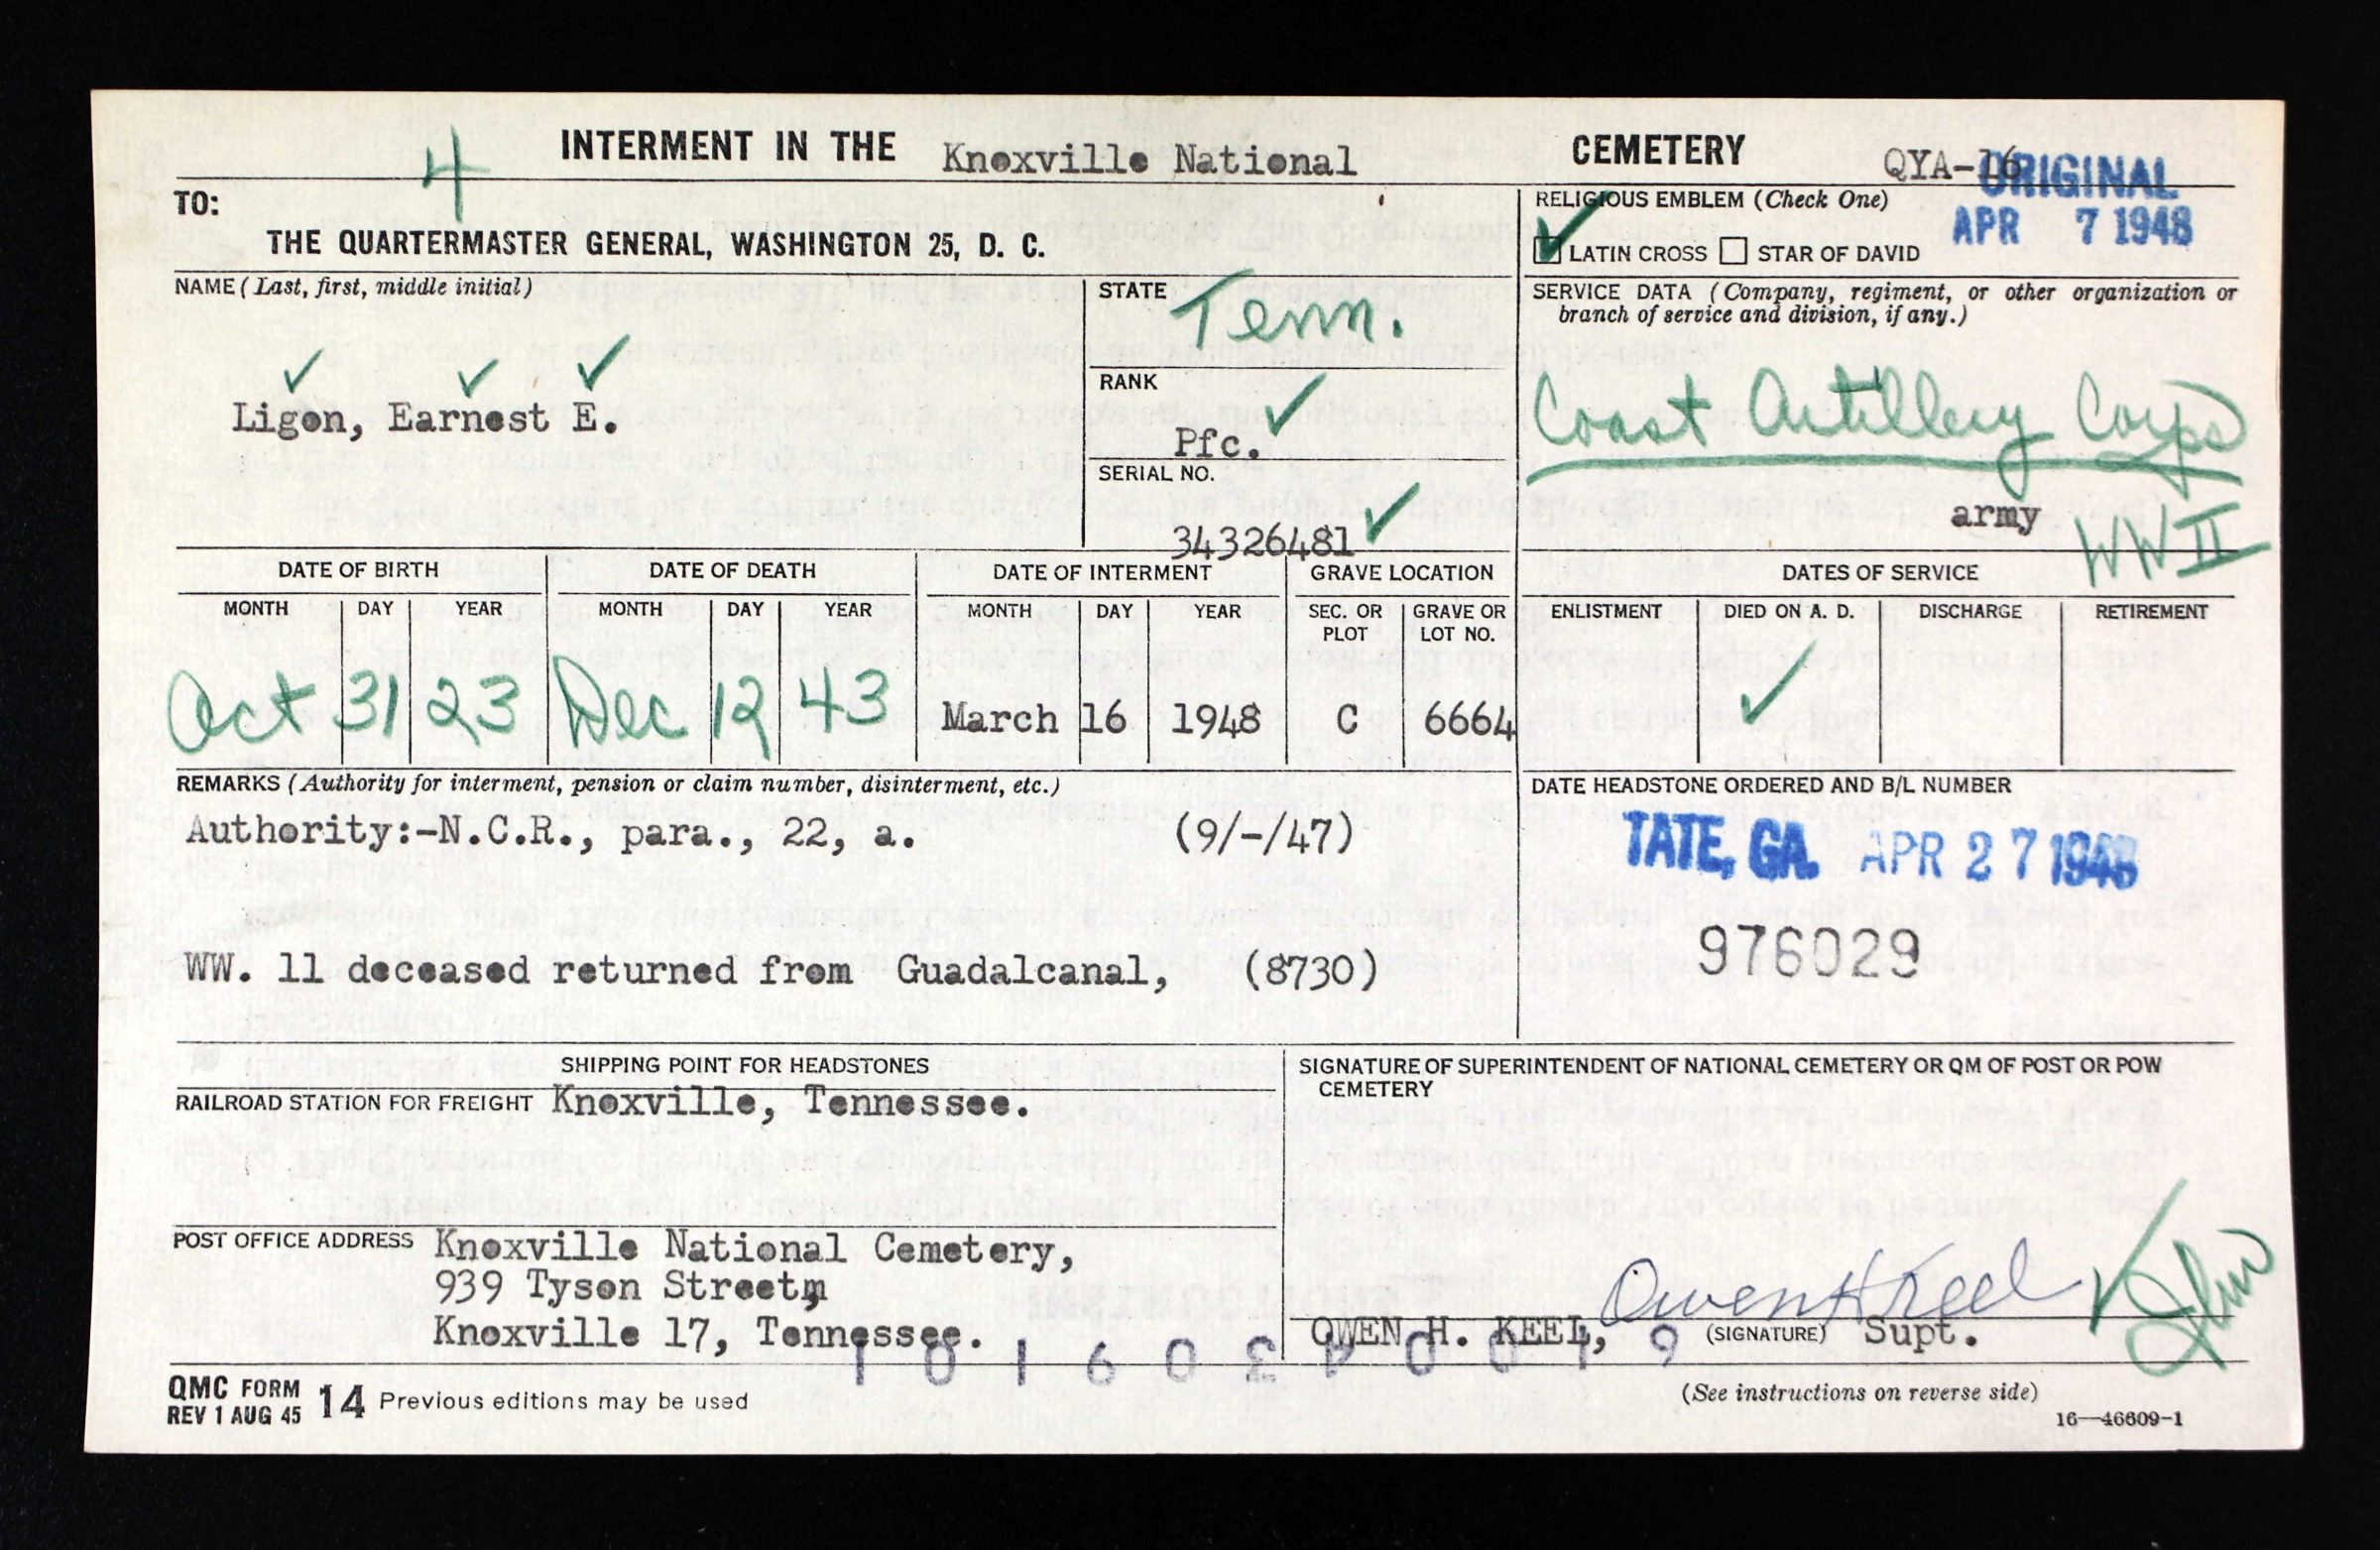 4
INTERMENT IN THE Knoxville National CEMETERY QYA-16
ORIGINAL
APR 7 1948
TO:
THE QUARTERMASTER GENERAL, WASHINGTON 25, D. C.
RELIGIOUS EMBLEM (Check One)
✓ LATIN CROSS ☐ STAR OF DAVID
NAME (Last, first, middle initial)
✓ ✓ ✓
Ligon, Earnest E.
STATE Tenn.
RANK
Pfc. ✓
SERIAL NO.
34326481 ✓
SERVICE DATA (Company, regiment, or other organization or
branch of service and division, if any.)
Coast Artillery Corps
army WW II
DATE OF BIRTH DATE OF DEATH DATE OF INTERMENT GRAVE LOCATION DATES OF SERVICE
MONTH DAY YEAR MONTH DAY YEAR MONTH DAY YEAR SEC. OR PLOT GRAVE OR LOT NO. ENLISTMENT DIED ON A. D. DISCHARGE RETIREMENT
Oct 31 23 Dec 12 43 March 16 1948 C 6664 ✓
REMARKS (Authority for interment, pension or claim number, disinterment, etc.)
Authority:-N.C.R., para., 22, a. (9/-/47)
WW. 11 deceased returned from Guadalcanal, (8730)
DATE HEADSTONE ORDERED AND B/L NUMBER
TATE, GA. APR 27 1948
976029
SHIPPING POINT FOR HEADSTONES
RAILROAD STATION FOR FREIGHT Knoxville, Tennessee.
POST OFFICE ADDRESS Knoxville National Cemetery,
939 Tyson Street,
Knoxville 17, Tennessee.
SIGNATURE OF SUPERINTENDENT OF NATIONAL CEMETERY OR QM OF POST OR POW
CEMETERY
Owen H Keel
OWEN H. KEEL, (SIGNATURE) Supt.
QMC FORM 14 Previous editions may be used
REV 1 AUG 45
(See instructions on reverse side)
16—46609-1